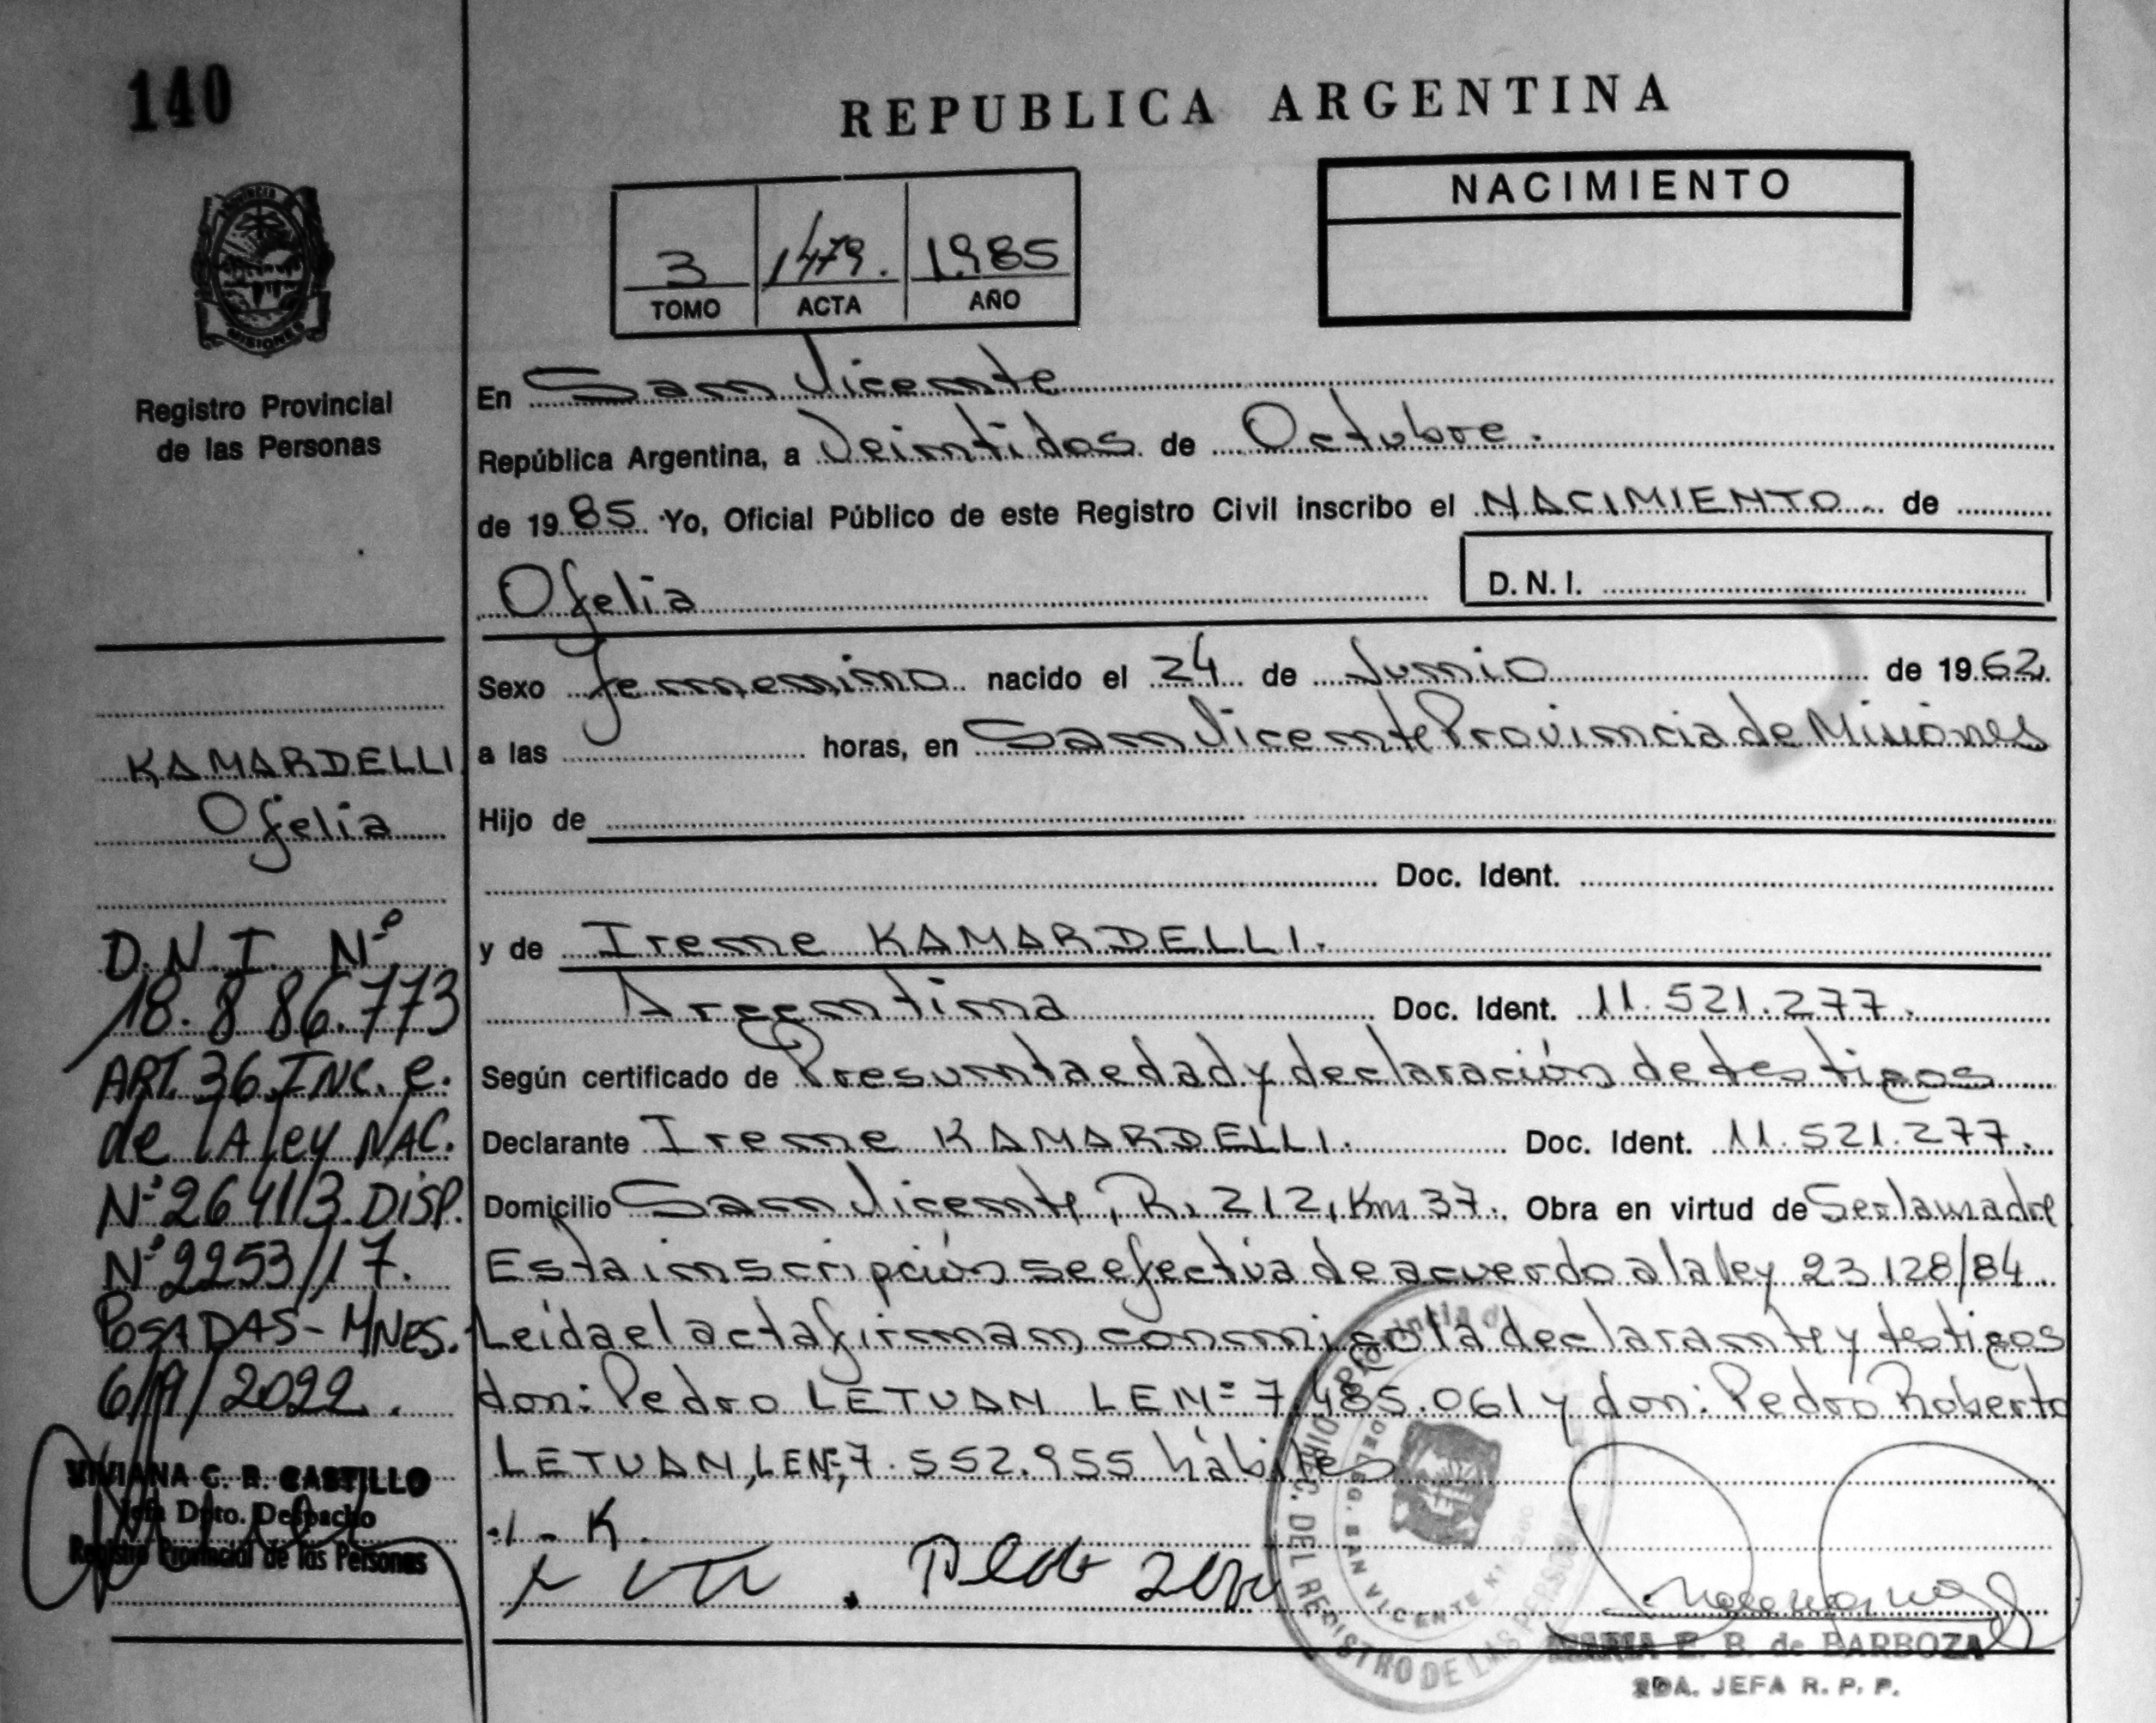 140
REPUBLICA ARGENTINA
NACIMIENTO
3 1479. 1.985
TOMO ACTA AÑO
PROVINCIA
MISIONES
Registro Provincial
de las Personas
En San Vicente
República Argentina, a Veintidos de Octubre.
de 1985 Yo, Oficial Público de este Registro Civil inscribo el NACIMIENTO de
Ofelia
D. N. I.
Sexo femenino nacido el 24 de Junio de 1962
a las horas, en San Vicente Provincia de Misiones
Hijo de
Doc. Ident.
y de Irene KAMARDELLI.
Argentina Doc. Ident. 11.521.277.
Según certificado de Presunta edad y declaración de testigos
Declarante Irene KAMARDELLI. Doc. Ident. 11.521.277.
Domicilio San Vicente, R. 212, Km 37. Obra en virtud de Ser la madre
Esta inscripción se efectiva de acuerdo a la ley 23.128/84
Leída el acta firman, conmigo la declarante y testigos
don: Pedro LETUAN LEN= 7.485.061 y don: Pedro Roberto
LETUAN, LEN=, 7.552.955 hábiles
./- K.
KAMARDELLI
Ofelia
D.N.I. Nº
18.886.773
ART. 36 INC. e.
de lA ley NAC.
Nº 26413 DISP.
Nº 2253/17.
POSADAS - MNES.
6/9/2022.
VIVIANA G. R. CASTILLO
Jefa Dpto. Despacho
Registro Provincial de las Personas
DIREC. DEL REGISTRO DE LAS PERSONAS
DELEG. SAN VICENTE
MARIA E. B. de BARBOZA
2DA. JEFA R. P. P.